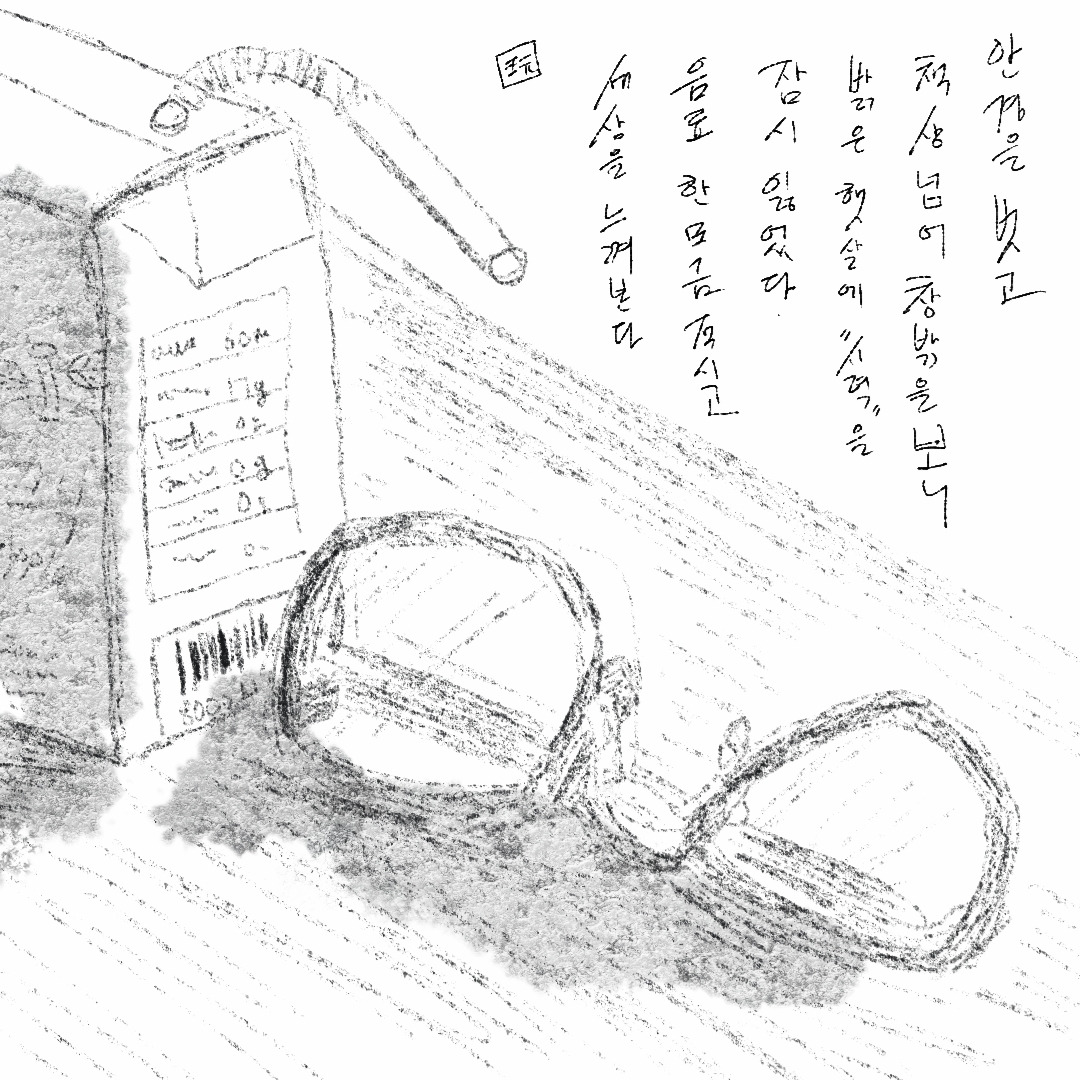 안경을 벗고
책상 넘어 창밖을 보니
밝은 햇살에 "시력"을
잠시 잃었다.
음료 한 모금 적시고
세상을 느껴본다
60m
17g
0g
0g
0g